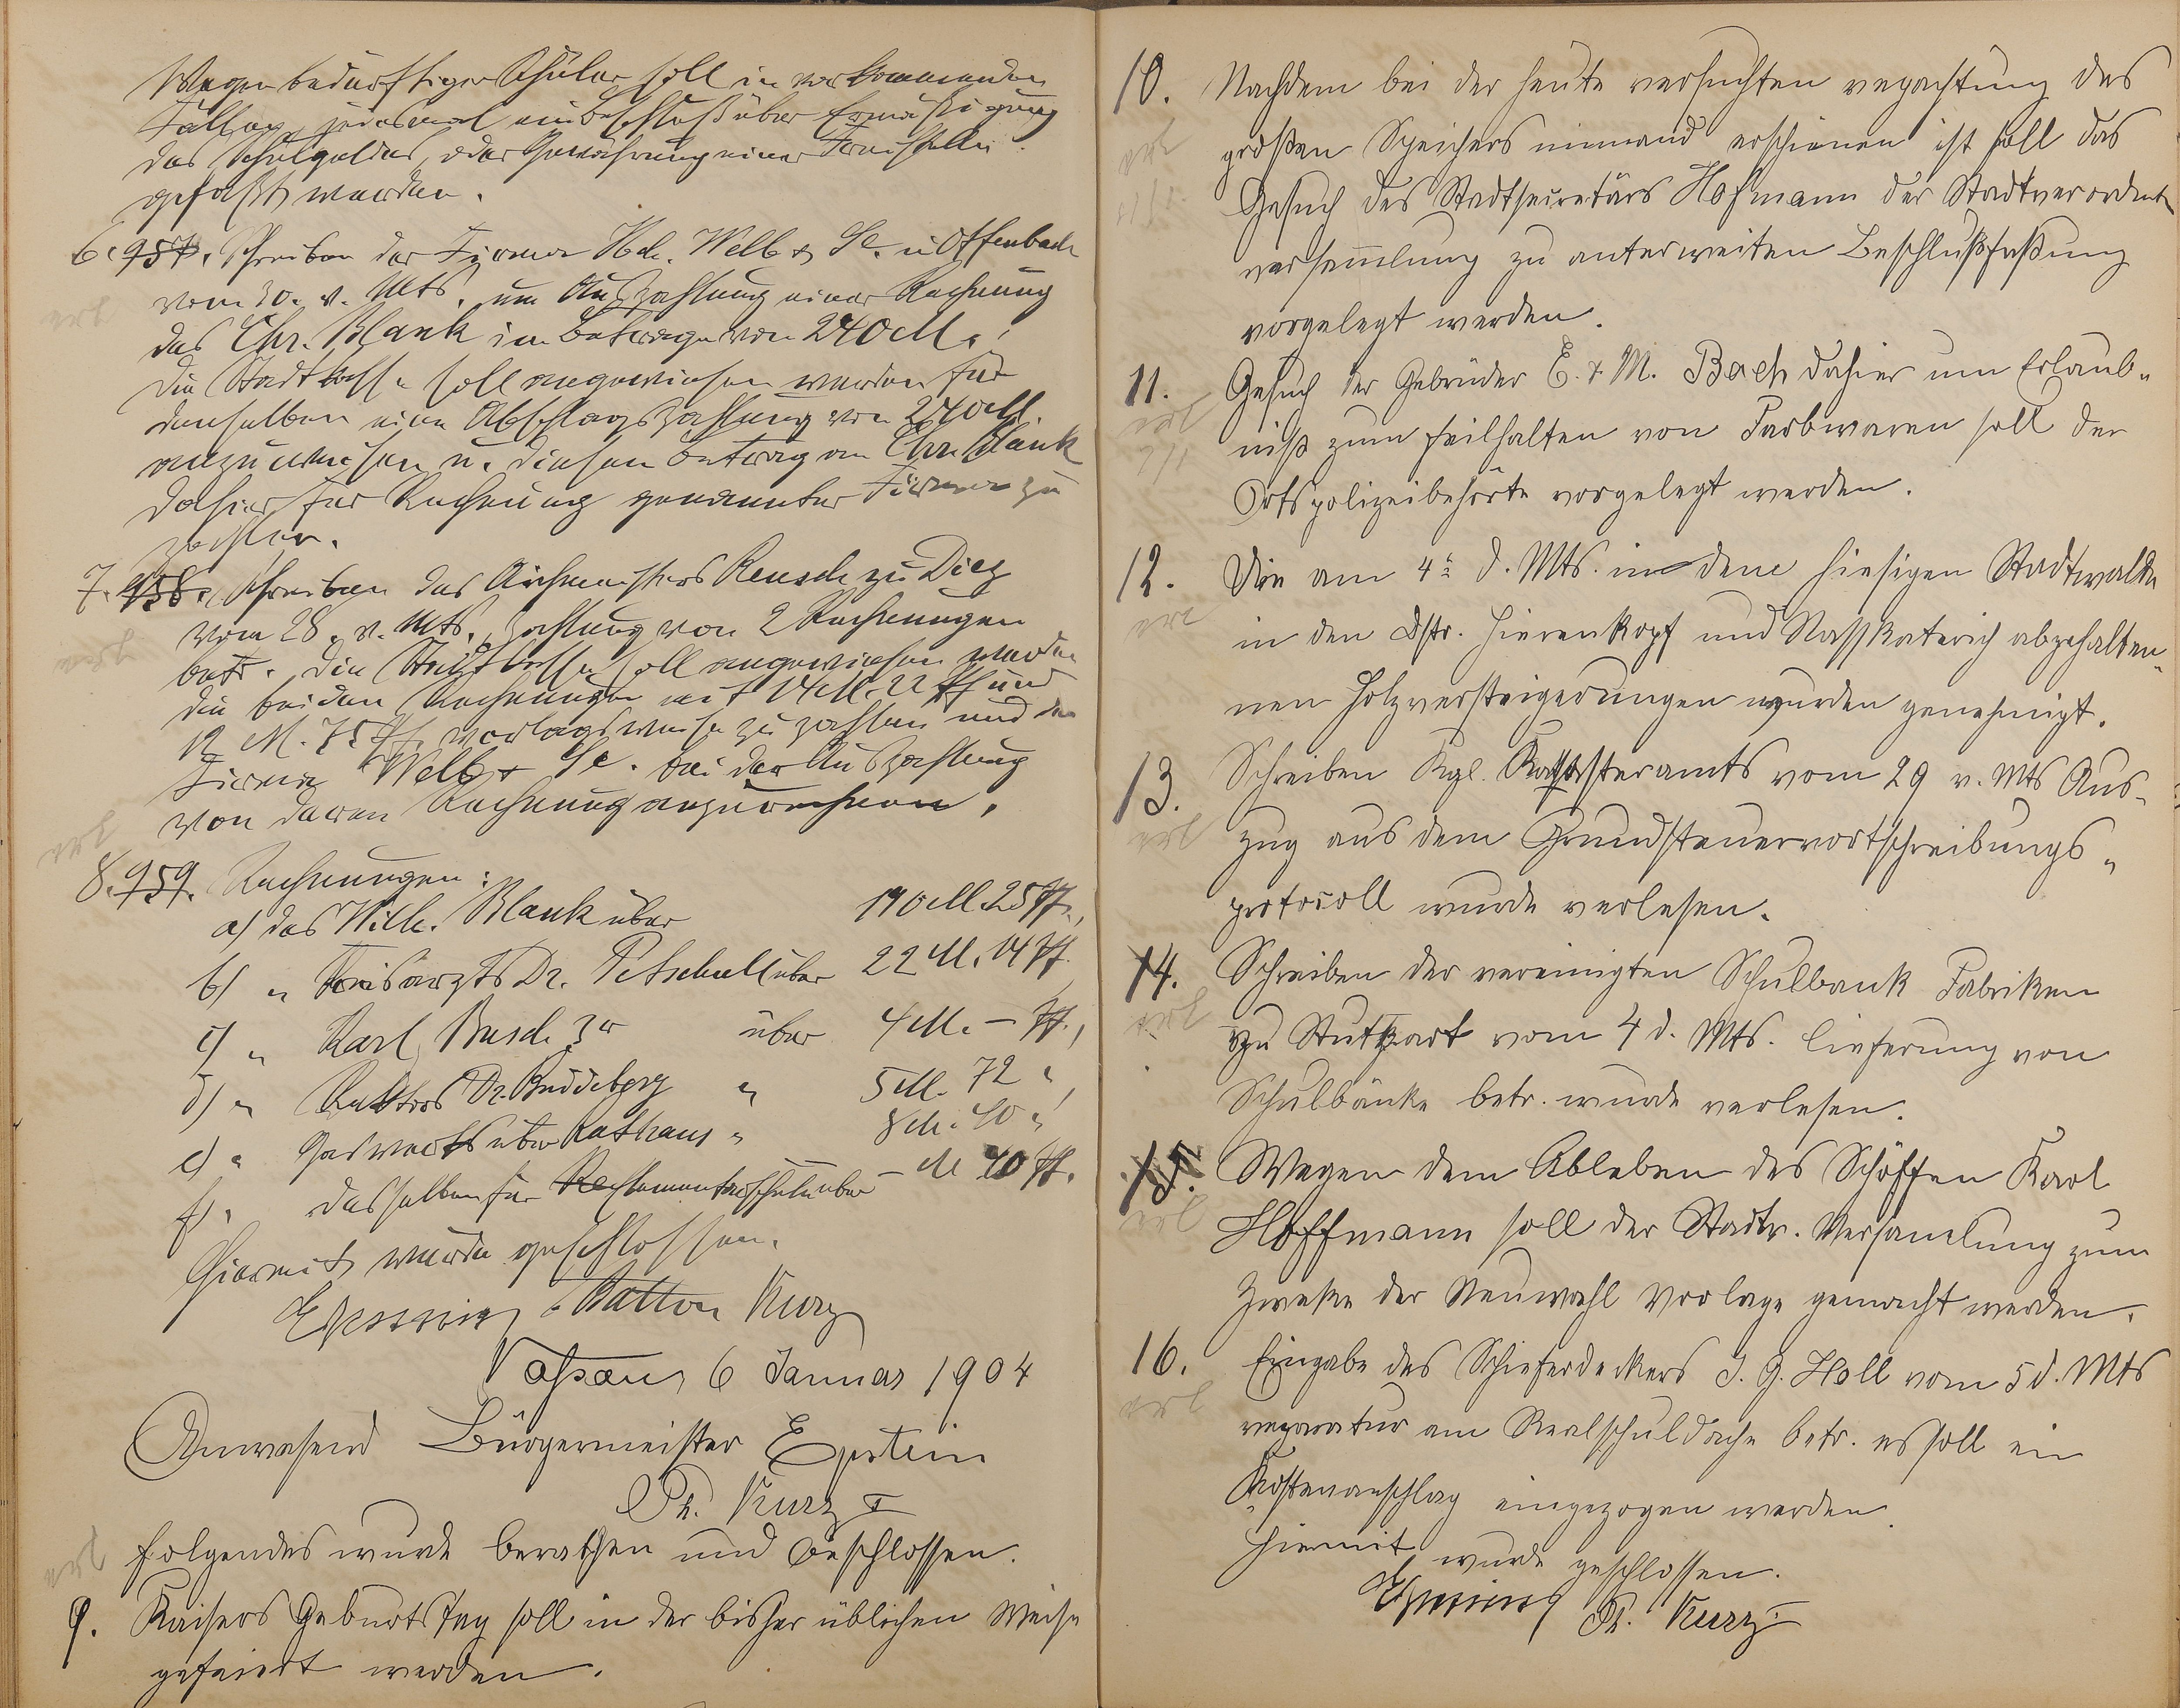 Wegen bedürftiger Schüler soll in vorkommenden
Fällen jedesmal ein Beschluß über Ermäßigung
des Schulgeldes, oder Gewährung einer Freistelle
gefaßt werden.
6. 957. Schreiben der Firma Hch. Welb & Se. in Offenbach
vom 30. v. Mts. um Auszahlung einer Rechnung
des Chr. Blank im Betrage von 240 M.
Die Stadtkasse soll angewiesen werden für
denselben eine Abschlagszahlung von 240 M.
anzuweisen u. diesen Betrag an Chr. Blank
dahier für Rechnung genannter Firma zu
zahlen.
7. 958. Schreiben des Aichmeisters Reusch zu Diez
vom 28. v. Mts. Zahlung von 2 Rechnungen
betr. Die Stadtkasse soll angewiesen werden
die beiden Rechnungen mit 14 M. 22 Pf und
12 M. 75 Pf vorlagsweise zu zahlen und der
Firma Welb & Se. bei der Auszahlung
von deren Rechnung anzurechnen.
8. 959. Rechnungen:
a) des Wilh. Blank über 190 M. 25 Pf.,
b) " Kreisarzts Dr. Petschull über 22 M. 14 Pf.
c) " Karl Busch 3r über 4 M. – Pf.,
d) " Rektors Dr. Buddeberg " 5 M. 72 "
e) " Gaswerks über Rathaus " 8 M. 40 "
f) " desselben für Elementarschule über – M 40 Pf.
Hiermit wurde geschlossen.
Kurz
Nassau, 6 Januar 1904
Anwesend Bürgermeister Epstein
Ph. Kurz I
erl
Folgendes wurde berathen und beschlossen.
9. Kaisers Geburtstag soll in der bisher üblichen Weise
gefeiert werden.
10. Nachdem bei der heute versuchten verpachtung des
großen Speichers niemand erschienen ist soll das
Gesuch des Stadtsecretärs Hofmann der Stadtverordnet
versammlung zu anterweiten Beschlußfaßung
vorgelegt werden.
11. Gesuch der Gebrüder E. & M. Bach dahier um Erlaub-
niß zum Feilhalten von Farbwaren soll der
Ortspolizeibehörte vorgelegt werden.
12. Die am 4ten d. Mts. in dem hiesigen Stadtwalde
in den Dstr. Hierenkopf und Nasskaterich abgehalten-
nen Holzversteigerungen wurden genehmigt.
13. Schreiben Kgl. Katasteramts vom 29 v. Mts Aus-
zug aus dem Grundsteuervortschreibungs-
protocoll wurde verlesen.
14. Schreiben der vereinigten Schulbank Fabriken
zu Stuttgart vom 4 d. Mts. lieferung von
Schulbänke betr. wurde verlesen.
15. Wegen dem Ableben des Schöffen Karl
Hoffmann soll der Stadtv. Versamlung zum
Zwecke der Neuwahl Vorlage gemacht werden.
16. Eingabe des Schieferdeckers J. G. Holl vom 5 d. Mts
reparatur am Realschuldache betr. es soll ein
Kostenanschlag eingezogen werden.
Hiermit wurde geschlossen.
Ph. Kurz I